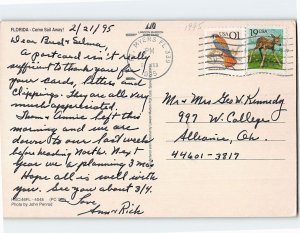 FLORIDA - Come Sail Away!
2/21/95
1995
Dear Bud & Selma,
A postcard isn't really
sufficient to thank you for
your cards, letters and
clippings. They are all very
much appreciated.
Tom & Annie left this
morning and we are
down to our last week
before heading North. Next
year we a planning 3 mos.
Hope all is well with
you. See you about 3/4.
Love
Ann & Rick
FT MYERS FL 339
PM
1995
10
19 USA
Mr & Mrs Geo W. Kennedy
997 W. College
Alliance, Oh.
44601-3817
Photo by John Penrod